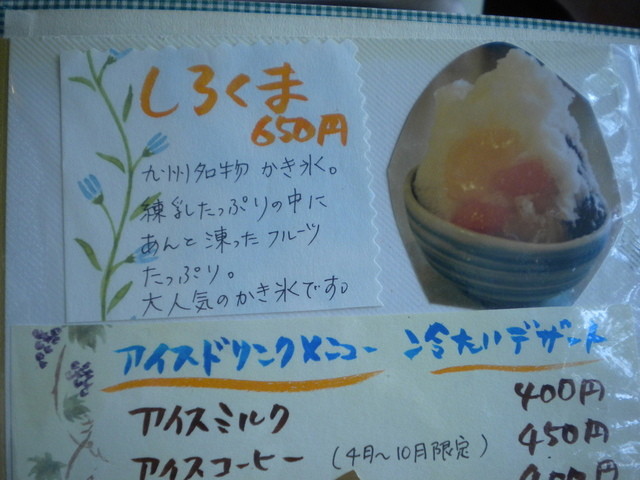 しろくま
650円
九州名物 かき氷。
練乳たっぷりの中に
あんと凍ったフルーツ
たっぷり。
大人気のかき氷です。
アイスドリンクメニュー 冷たいデザート
400円
アイスミルク 450円
アイスコーヒー (4月～10月限定)